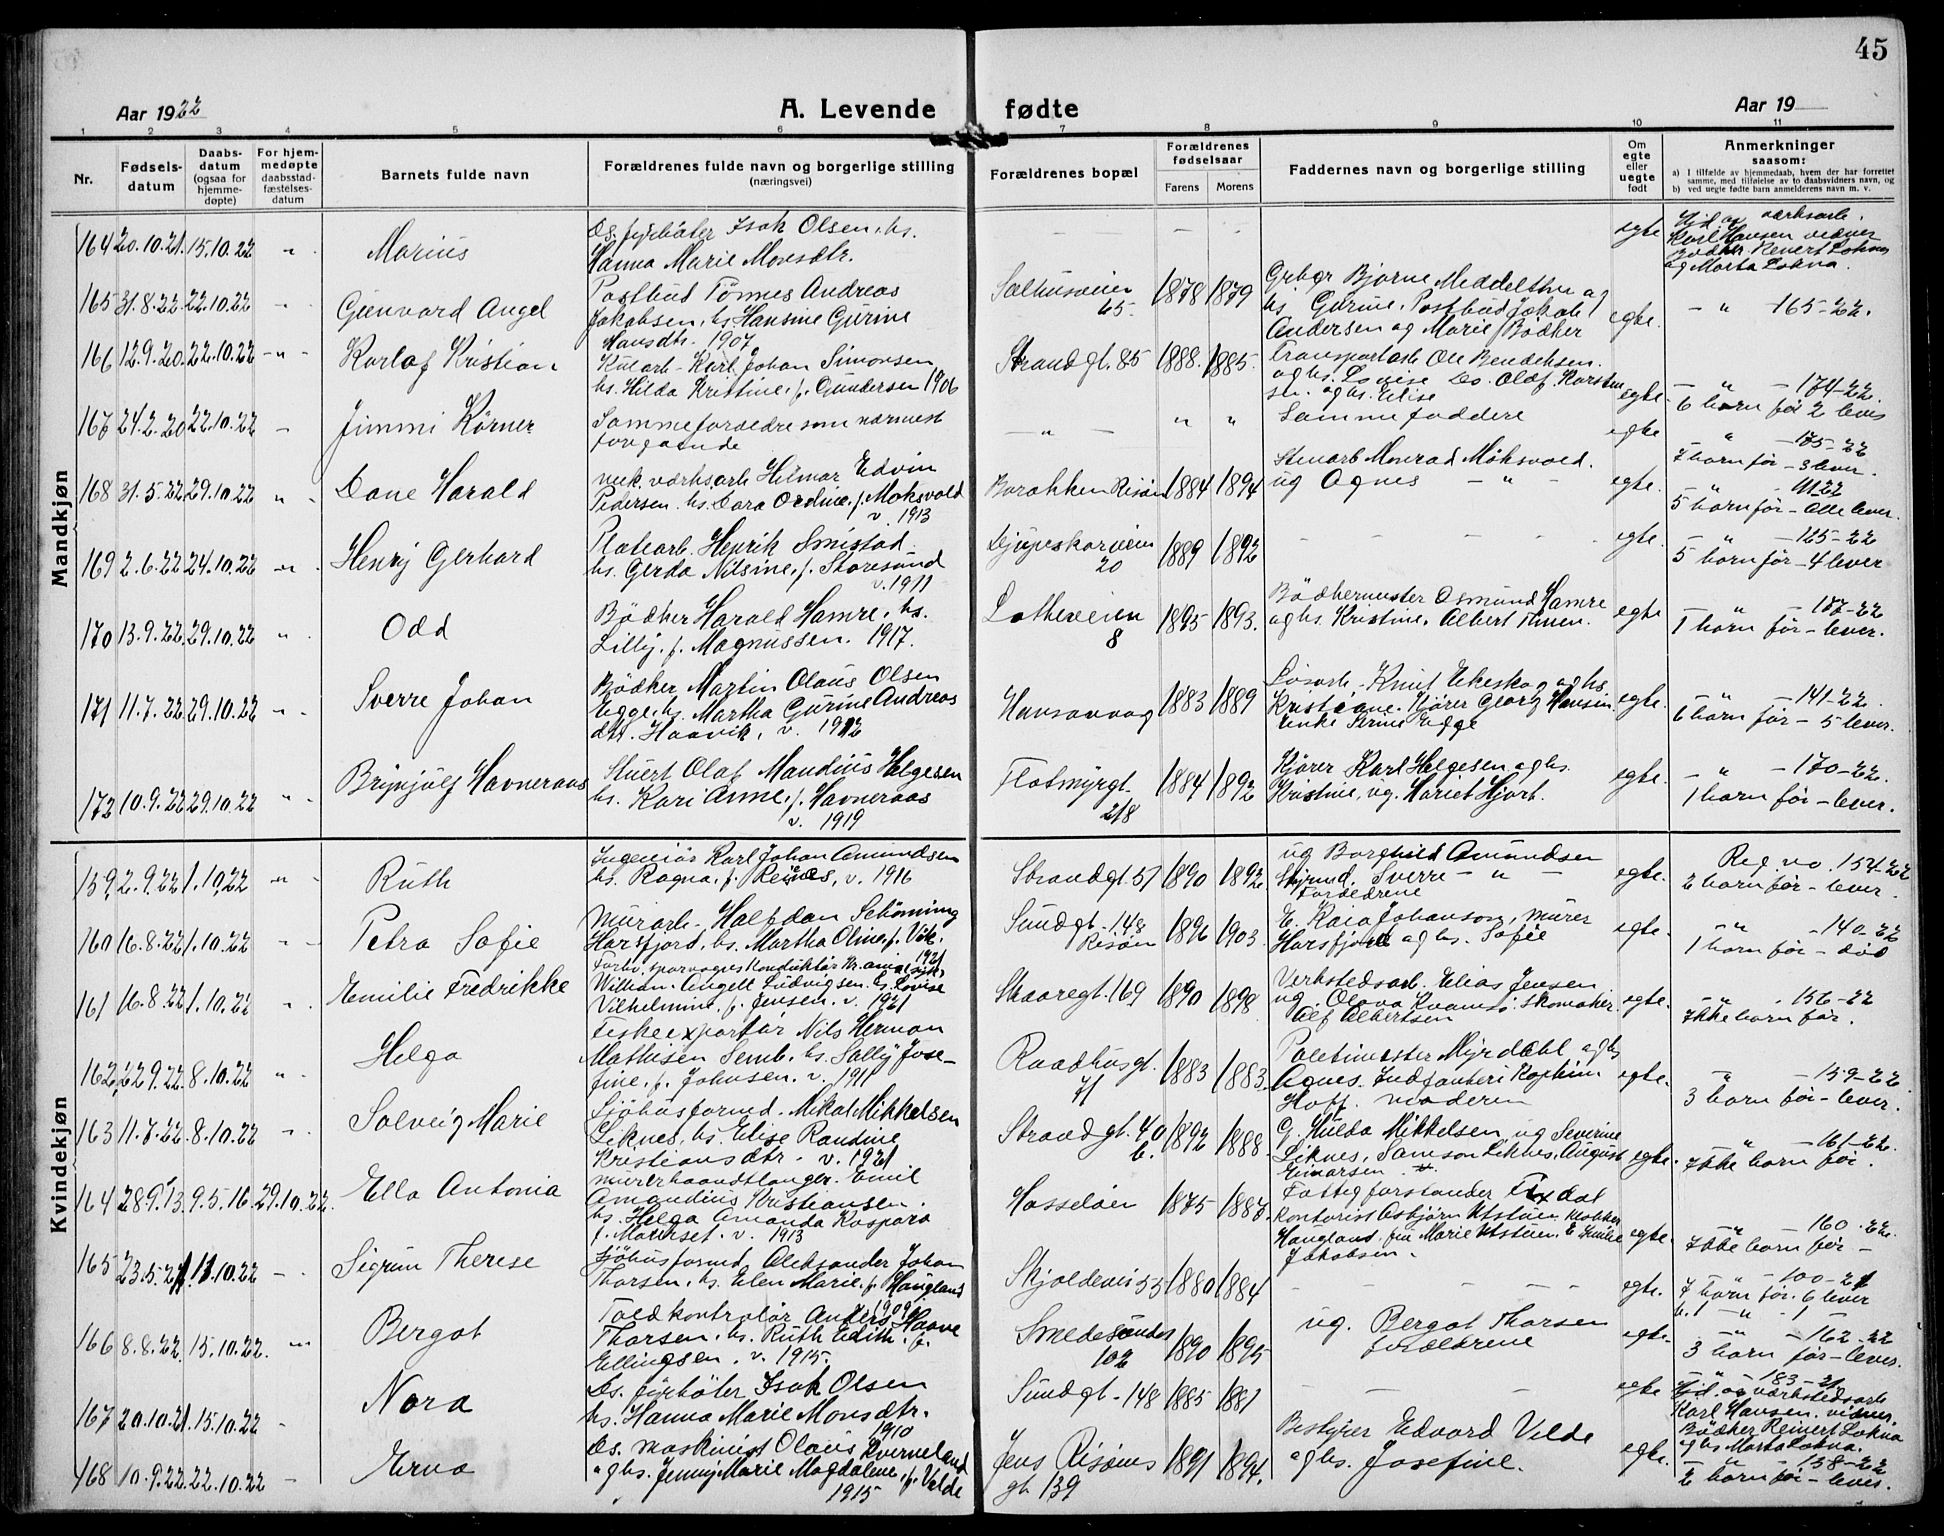 45
Aar 1922
A. Levende fødte
Aar 19
1 2 3 4 5 6 7 8 9 10 11
Nr.
Fødsels-
datum
Daabs-
datum
(ogsaa for
hjemme-
døpte)
For hjem-
medøpte
daabsstad-
fæstelses-
datum
Barnets fulde navn
Forældrenes fulde navn og borgerlige stilling
(næringsvei)
Forældrenes bopæl
Forældrenes
fødselsaar
Farens Morens
Faddernes navn og borgerlige stilling
Om
egte
eller
uegte
født
Anmerkninger
saasom:
a) I tilfælde av hjemmedaab, hvem der har forrettet
samme, med tilføielse av to daabsvidners navn, og
b) ved uegte fødte barn anmelderens navn m. v.
Mandkjøn
164 20.10.21. 15.10.22 Marius
Ds. fyrbøter Isak Olsen. hs.
Hanna Marie Monsdtr.
egte
Karl Hansen vidner
Bødker Reinert Lokna
og Marta Lokna.
165 31.8.22. 22.10.22 Gunvard Angel
Postbud Tønnes Andreas
Jakobsen. hs Hansine Gurine
Hansdtr. 1907
Salhusveien
65.
1878 1879
Grbgr Bjarne Meddelthon og
hs Gurine, Postbud Jakob
Andersen og Marie Bødker
egte.
- " - 165-22.
166 12.9.20. 22.10.22 Karlaf Kristian
Kularb. Karl Johan Simonsen
hs. Hilda Kristine, f. Gundersen 1906
Strandgt. 85 1888. 1885.
Transportarb Ole Bendiksen.
og hs. Lovise Do. Olaf Karsten
sen. og hs. Elise
egte.
- " - 174-22.
6 barn før 2 lever
167 24.2.20 22.10.22 Jimmi Körner
Samme foreldre som nærmest
forgaaende
- " - " "
Samme faddere
egte
- " - 175-22
7 barn før - 3 lever.
168 31.5.22. 29.10.22 Dane Harald
mek. værksarb Hilmar Edvin
Pedersen. hs. Dora Ordine, f. Moksvold
v. 1913
Barakken Risøen 1884 1894
Stenarb Monrad Moksvold.
ug Agnes - " -
egte.
5 barn før - alle lever.
169 2.6.22 24.10.22 Henry Gerhard
Platearb. Henrik Smistad.
hs. Gerda Nilsine, f. Storesund
v. 1911
Djupaskarveien
20
1889 1892
egte.
- " - 125-22
5 barn før - 4 lever
170 13.9.22. 29.10.22 Odd
Bødker Harald Hamre, hs.
Lilly, f. Magnussen. 1917.
Lotheveien
8
1895 1893.
Bødkermester Osmund Hamre
og hs. Kristine, Albert
egte
- " - 157-22
1 barn før - lever.
171 11.7.22. 29.10.22 Sverre Johan
Bødker Martin Olaus Olsen
Egge. hs. Martha Gurine Andreas
dtr. Haavik, v. 1912
Hansavaag 1883 1889
Løsarb. Knut Ekeskog og hs.
Kristiane. Kjører Georg Hansen
Enke Serine Egge
egte.
- " - 141-22.
6 barn før - 5 lever.
172 10.9.22 29.10.22 Brynjulf Havneraas
Stuert Olaf Mandius Helgesen
hs. Kari Anne, f. Havneraas
v. 1919
Flotmyrgt.
218
1884 1892
Kjører Karl Helgesen og hs.
Kristine, ug. Hariet Hjort.
egte
- " - 170-22.
1 barn før - lever.
Kvindekjøn
159 2.9.22 1.10.22 Ruth
Ingeniør Karl Johan Amundsen
hs. Ragna, f. Reines, v. 1916
Strandgt. 57 1890 1892
ug Borghild Amundsen
Sverre - " -
Foreldrene
egte.
Reg. no. 154-22
2 barn før - lever.
160 16.8.22 1.10.22 Petra Sofie
Murarb. Halfdan Schöning
Harsfjord, hs. Martha Oline, f. Vik.
1921
Sundgt. 148
Risøen
1896 1903.
E. Kaia Johanson, murer
Harsfjord og hs. Sofie
egte.
- " - 140-22
1 barn før - død
161 16.8.22 1.10.22 Emilie Fredrikke
Forhv. sporvognskonduktør
William Angell Ludvigsen. hs. Lovise
Vilhelmine, f. Jensen. v. 1921
Skaaregt. 169 1890 1898
Verkstedsarb. Elias Jensen
ug. Olava Kvamsø. Skomaker
Alf Albertsen
egte.
- " - 156-22
Ikke barn før.
162 22.9.22. 8.10.22 Helga
Fiskeexportør Nils Herman
Mathisen Semb. hs. Sally Jose-
fine, f. Johnsen. v. 1911
Raadhusgt.
71
1883 1883.
Politimester Myrdahl og hs
Agnes. Infanteri Kaptein
Hoff. moderen
egte.
- " - 159-22
3 barn før - lever.
163 11.7.22. 8.10.22 Solveig Marie
Sjøhusformd. Mikal Mikkelsen
Liknes, hs. Elise Randine
Kristiansdtr. v. 1921
Strandgt. 40
b.
1892 1888.
G. Hulda Mikkelsen, ug Severine
Liknes, Samson Liknes, August
Einarsen
egte.
- " - 161-22.
Ikke barn før.
164 28.9.13 9.5.16 29.10.22. Ella Antonia
murerhaandtlanger. Emil
Amandius Kristiansen.
hs. Helga Amanda Kaspara
v. 1913
Hasseløen 1875 1887.
Fattigforstander
kontorist Asbjørn Utstuen
Haugland. frk Marie Utstuen
Jakobsen.
egte.
- " - 160-22.
Ikke barn før -
165 23.5.21 11.10.22 Sigrun Therese
Sjøhusformd. Aleksander Johan
Thorsen, hs. Elen Marie, f. Haugland
1909
Skjoldavei 53 1880 1884
egte.
- " - 100-21
7 barn før. 6 lever
166 8.8.22. 15.10.22. Bergot
Toldkontrolør Anders Haave
Thorsen, hs. Ruth Edith, f.
Ellingsen, v. 1915.
Smedesundet
102
1890 1895
ug. Bergot Thorsen
forældrene
egte-
- " - 162-22
3 barn før - lever.
167 20.10.21. 15.10.22 Nora
Ds. fyrbøter Isak Olsen
hs. Hanna Marie Monsdtr.
1910
Sundgt. 148 1885 1881
egte
- " - 183-21
Hjd. av værkstedsarb
Karl Hansen. vidner.
Bødker Reinert Lokna
og hs Marta Lokna.
168 10.9.22. 22.10.22 Erna
Ds. maskinist Olaus Kverneland
og hs. Jenny Marie Magdalene, f. Velde
1915
Jens Risøens
gt. 139
1891 1894.
Bestyrer Edvard Velde
og hs. Josefine.
egte.
- " - 158-22
2 barn før - lever.